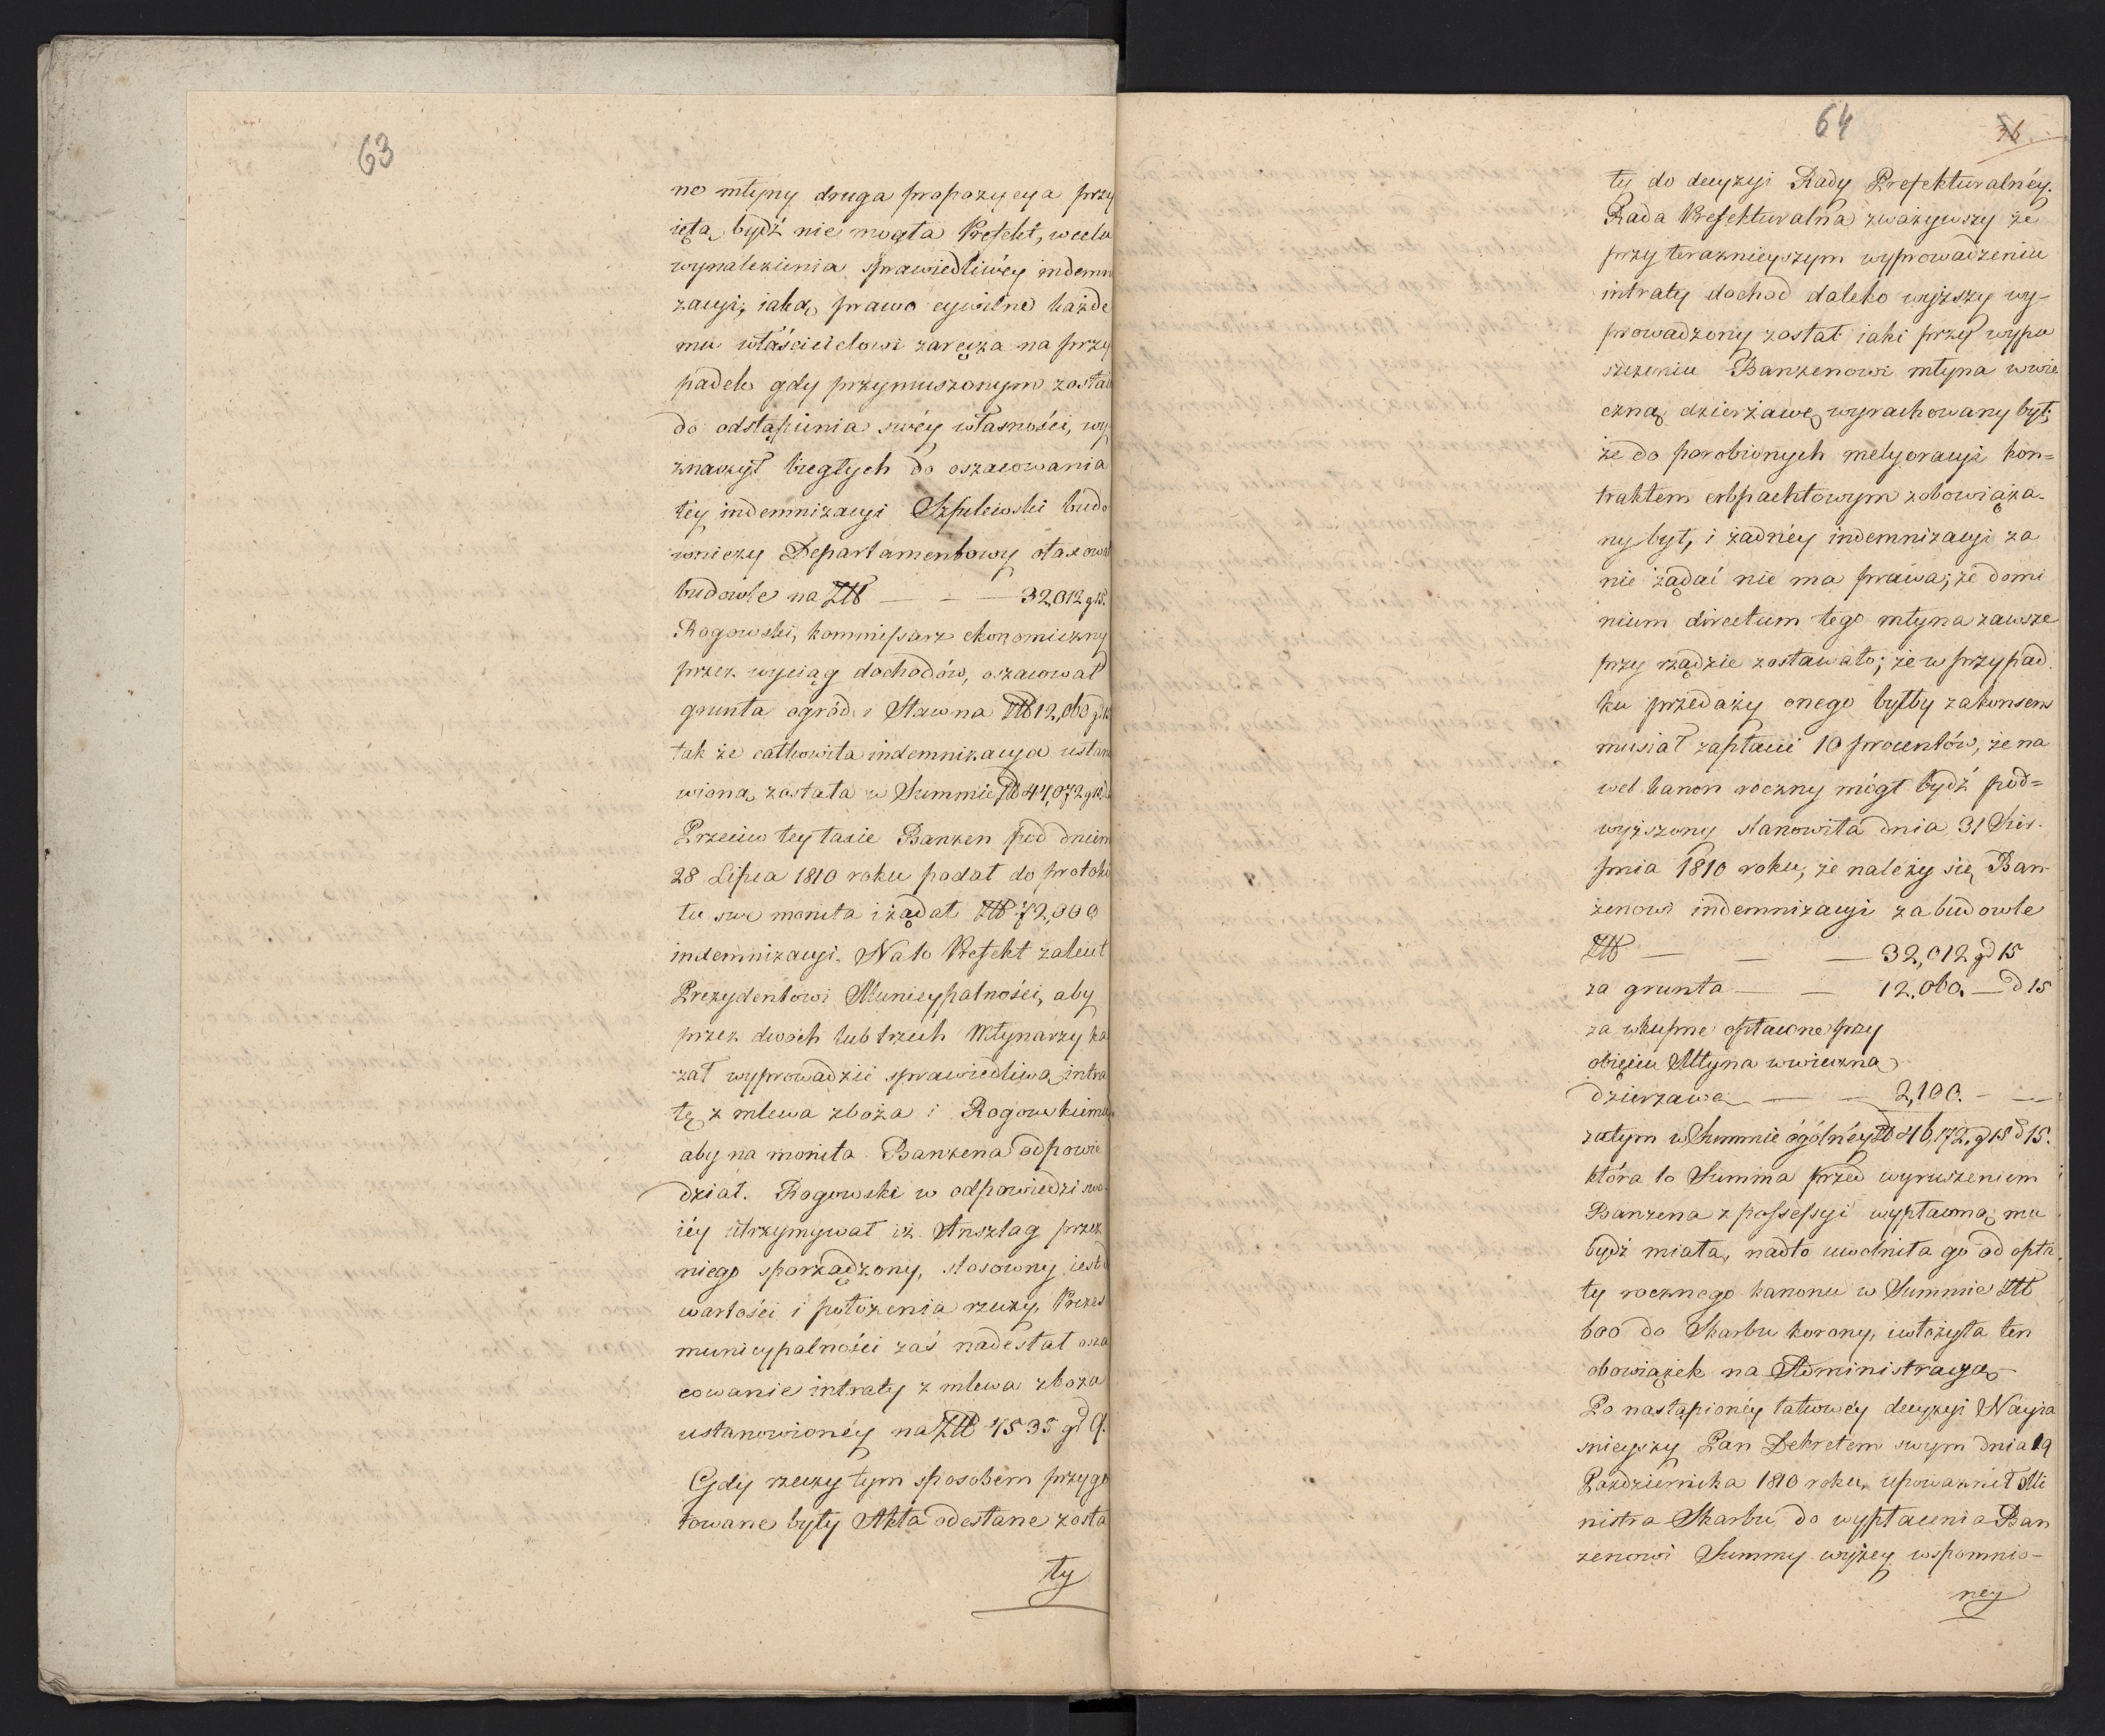 63
no młyny druga propozycya przy
iętą bydź nie mogła Prefekt, w celu
wynalezienia sprawiedliwéy indemn
zacyi, iaką prawo cywilne każde
mu właścicielowi zaręcza na przy
padek gdy przymuszonym zosta
do odstąpienia swéy własności, wy
znaczył biegłych do oszacowania
téy indemnizacyi Szpilewski budo
wniczy Departamentowy otaxowa
budowle na Złł — — — 32,012 g 15.
Rogowski, kommissarz ekonomiczny
przez wyciąg dochodów, oszacował
grunta ogród i Staw na Złł 12,060
tak że całkowita indemnizacya ustan
wioną została w Summie Złł 44,072 g 15
Przeciw téy taxie Banzen pod dniem
28 Lipca 1810 roku podał do protoku
łu swe monita i żądał Złł 72,000
indemnizacyi. Na to Prefekt zalecił
Prezydentowi Municypalności, aby
przez dwóch lub trzech Młynarzy ka
zał wyprowadzić sprawiedliwą intra
tę z mlewa zboża i Rogowskiemu
aby na monita Banzena odpowie
dział. Rogowski w odpowiedzi swo
iéy utrzymywał iż Anszlag przez
niego sporządzony, stosowny iest
wartości i położenia rzeczy, Prezes
municypalności zaś nadesłał osza
cowanie intraty z mlewa zboża
ustanowionéy na Złł 4535 g 9.
Gdy rzeczy tym sposobem przygo
towane były Akta odesłane zosta
ły
64
36
ły do decyzyi Rady Prefekturalnéy.
Rada Prefekturalna zważywszy że
przy teraznieyszym wyprowadzeniu
intraty dochod daleko wyższy wy-
prowadzony został iaki przy wypu
szczeniu Banzenowi młyna w wie
czną dzierżawę wyrachowany był;
że do porobionych melyoracyi kon=
traktem erbpachtowym zobowiąza-
ny był, i żadnéy indemnizacyi za
nie żądać nie ma prawa; że domi
nium directum tego młyna zawsze
przy rządzie zostawało; że w przypad
ku przedaży onego byłby za konsens
musiał zapłacić 10 procentów, że na
wet kanon roczny mógł bydź pod=
wyższony stanowiła dnia 31 Sier-
pnia 1810 roku, że należy się Ban-
zenowi indemnizacyi za budowle
Złł — — — 32,012 g 15
za grunta — — 12,060. — d 15
za wkupne opłacone przy
obięciu Młyna w wieczną
dzierzawę — — 2,100. — —
zatym w Summie ogólnéy Złł 46,172. g 15 d 15.
która to Summa przed wyruszeniem
Banzena z possessyi wypłaconą mu
bydź miała, nadto uwolniła go od opła
ty rocznego kanonu w Summie Złł
600 do Skarbu korony, i włożyła ten
obowiązek na Administracyą
Po nastąpionéy takowéy decyzyi Nayia
snieyszy Pan Dekretem swym dnia 19
Pazdziernika 1810 roku, upoważnił Mi
nistra Skarbu do wypłacenia Ban
zenowi Summy wyżey wspomnio-
néy